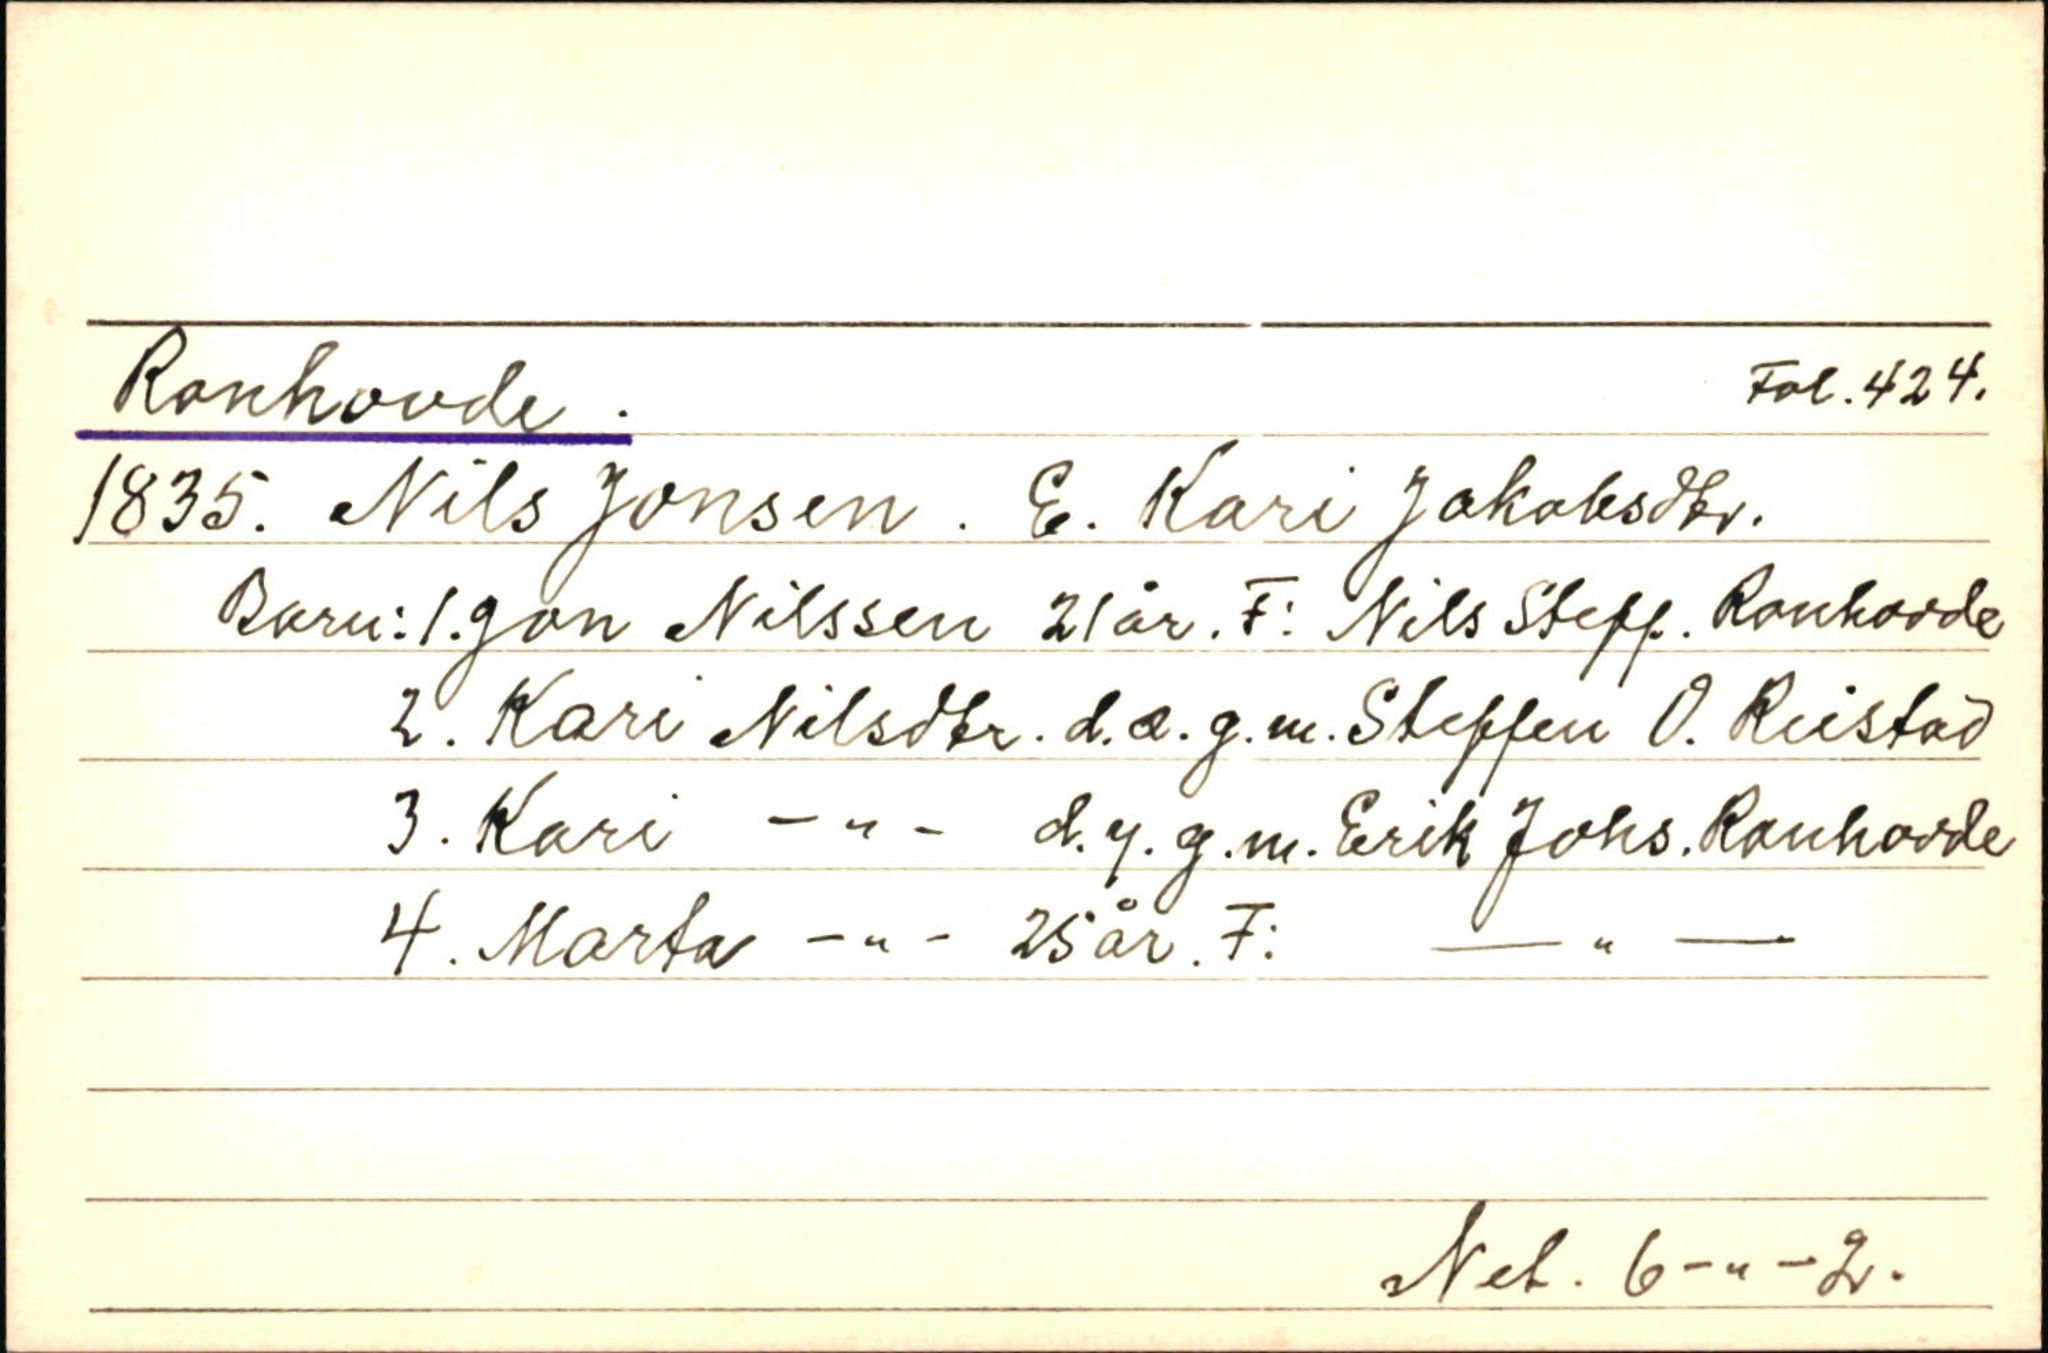 Ronhovde.
Fol. 424.
1835. Nils Jonsen. E. Kari Jakobsdtr.
Born: 1. Jon Nilssen 21 år. F: Nils Steff. Ronhovde
2. Kari Nilsdtr. d.e. g.m. Steffen O. Reistad
3. Kari -"- d.y. g.m. Erik Johs. Ronhovde
4. Marta -"- 25 år. F: —"—
Net. 6-"-2.